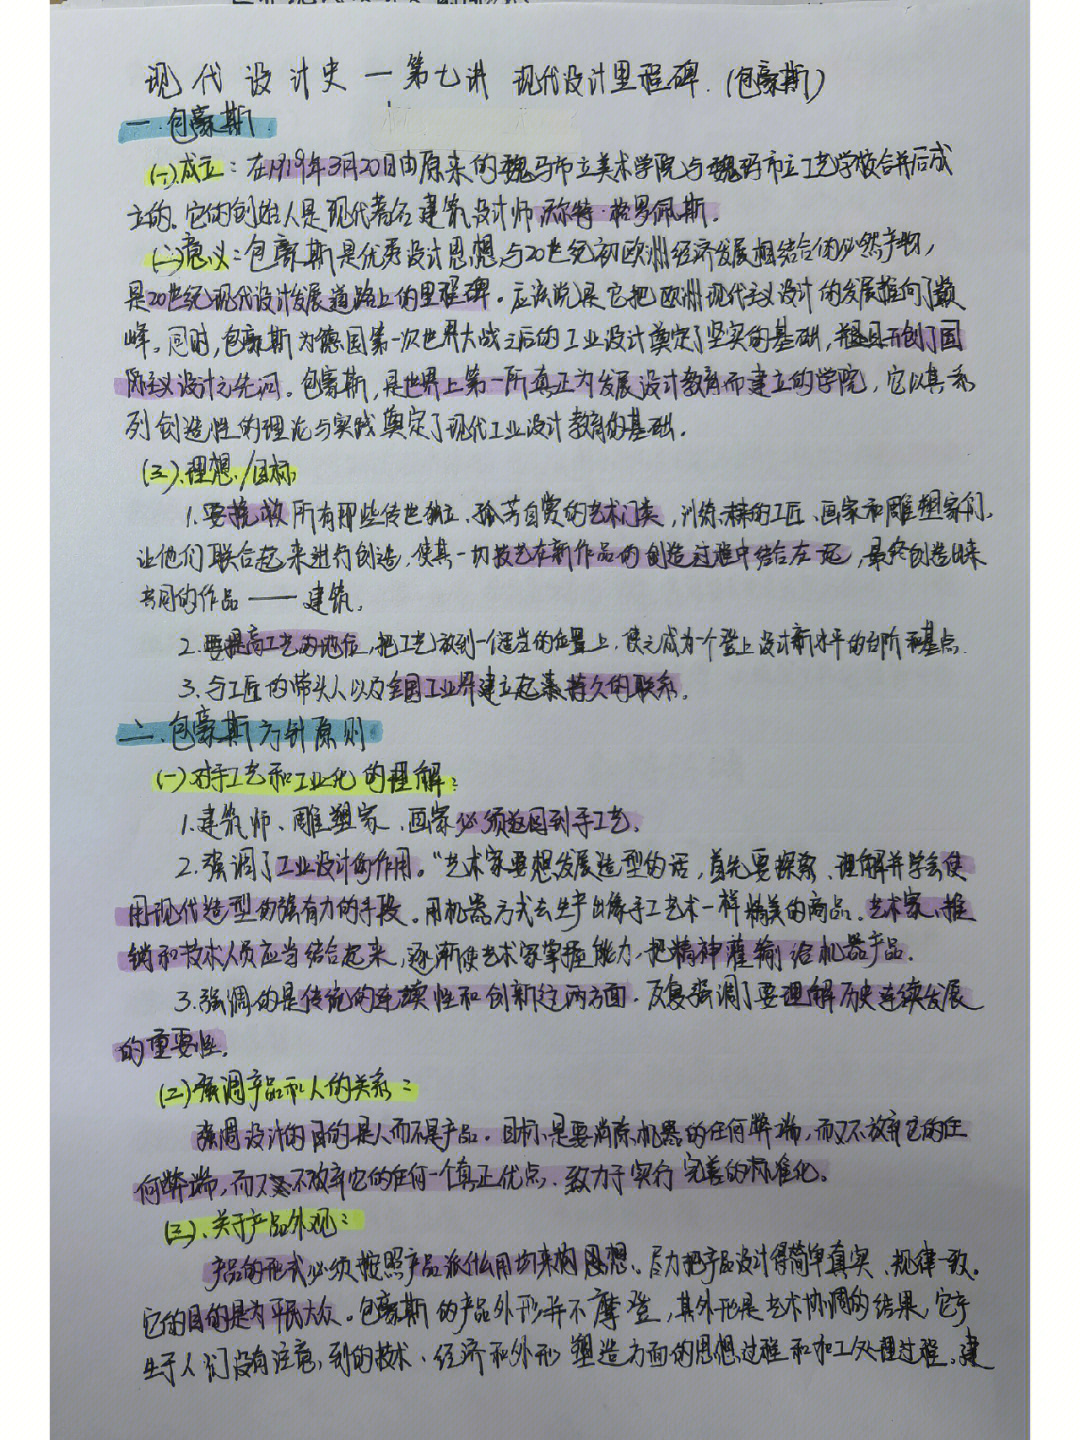 现代设计史—第七讲 现代设计里程碑.(包豪斯)
一.包豪斯
(一).成立:在1919年3月20日由原来的魏马市立美术学院与魏玛市立工艺学校合并后成
立的。它的创始人是现代著名建筑设计师·格罗佩斯。
(二)意义:包豪斯是优秀设计思想与20世纪初欧洲经济发展相结合的必然产物,
是20世纪现代设计发展道路上的里程碑。应该说是它把欧洲现代主义设计的发展推向了巅
峰。同时,包豪斯为德国第一次世界大战之后的工业设计奠定了坚实的基础,并且开创了国
际主义设计之先河。包豪斯,是世界上第一所真正为发展设计教育而建立的学院,它以其系
列创造性的理论与实践奠定了现代工业设计教育的基础。
(三).理想/目标
1.要挽救所有那些传世独立、孤芳自赏的艺术门类,训练未来的工匠、画家和雕塑家们,
让他们联合起来进行创造,使其一切技艺在新作品的创造过程中结合在一起,最终创造出来
共同的作品——建筑。
2.要提高工艺的地位,把工艺放到一个适当的位置上,使之成为一个登上设计新水平的台阶和基点.
3.与工匠的带头人以及全国工业界建立起来持久的联系。
二.包豪斯方针原则
(一)对手工艺和工业化的理解:
1.建筑师、雕塑家、画家必须返回到手工艺.
2.强调了工业设计的作用。“艺术家要想发展造型的话,首先要探索、理解并学会使
用现代造型的强有力的手段。用机器方式去生产出像手工艺术一样精美的商品。艺术家、推
销和技术人员应当结合起来,逐渐使艺术家掌握能力,把精神灌输给机器产品.
3.强调的是传统的连续性和创新这两方面.反复强调了要理解历史连续发展
的重要性。
(二)强调产品和人的关系:
强调设计的目的是人而不是产品。目标是要消除机器的任何弊端,而又不放弃它的任
何弊端,而又不放弃它的任何一个真正优点.致力于实行完善的标准化。
(三)、关于产品外观:
产品的形式必须按照产品派什么用场来构思想。尽力把产品设计得简单真实、规律一致。
它的目的是为平民大众。包豪斯的产品外形并不摩登,其外形是艺术协调的结果,它产
生于人们没有注意到的技术、经济和外形塑造方面的思想过程和加工处理过程。建